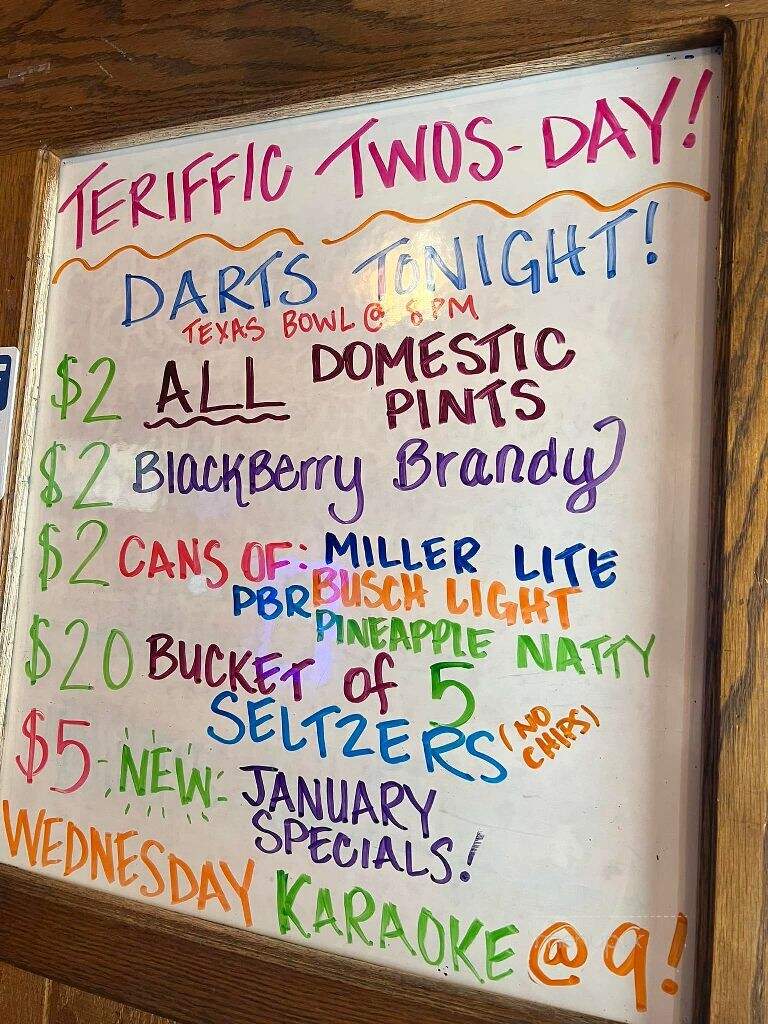 TERIFFIC TWOS-DAY!
DARTS TONIGHT!
TEXAS BOWL @ 8 PM
$2 ALL DOMESTIC
PINTS
$2 BlackBerry Brandy
$2 CANS OF: MILLER LITE
PBR BUSCH LIGHT
PINEAPPLE NATTY
$20 BUCKET of 5
SELTZERS (NO
CHIPS)
$5 -NEW- JANUARY
SPECIALS!
WEDNESDAY KARAOKE @ 9!